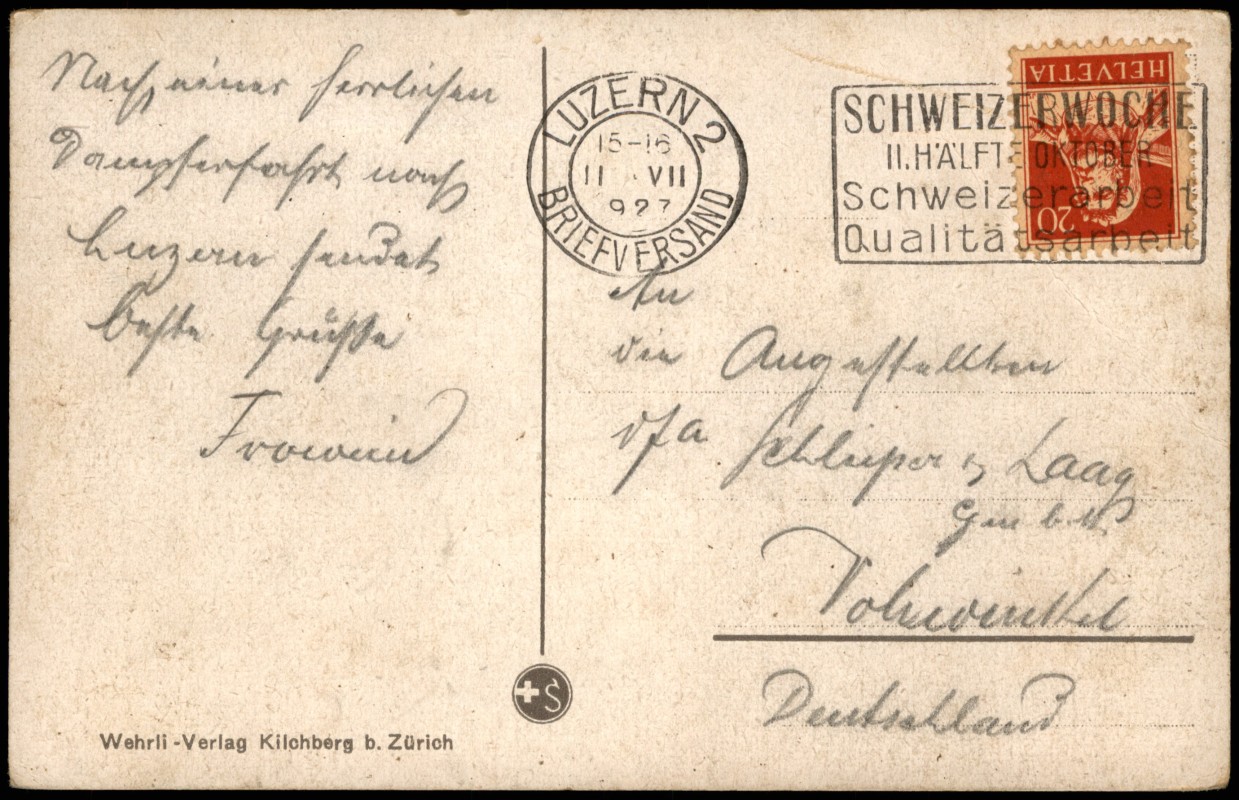 Nach einer herrlichen
Dampferfahrt nach
Luzern sendet
beste Grüsse
Frowein
Wehrli-Verlag Kilchberg b. Zürich
LUZERN 2
15-16
11 VII
927
BRIEFVERSAND
SCHWEIZERWOCHE
II. HÄLFTE OKTOBER
Schweizerarbeit
Qualitätsarbeit
HELVETIA
20
An
die Angestellten
dfa Schlieper & Laag
GmbH
Vohwinkel
Deutschland